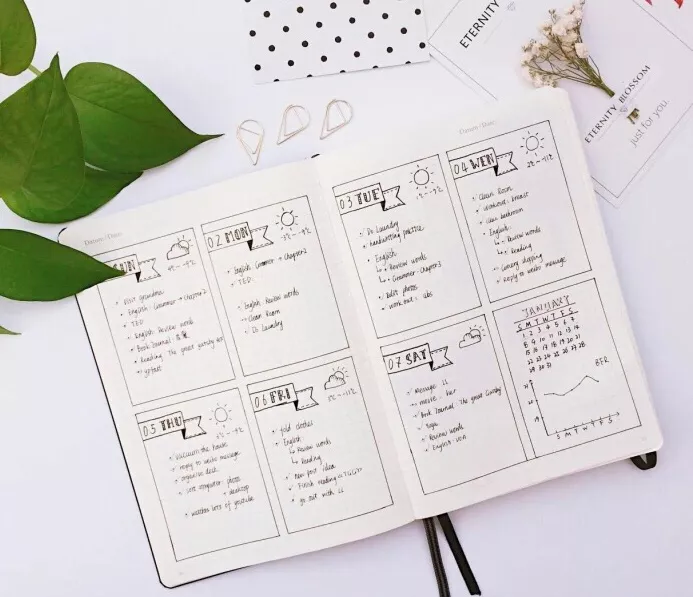 ETERNITY
ETERNITY BLOSSOM
just for you.
Datum / Date:
SUN
Visit grandma
English: Grammar → Chapter 2
TED
English Review words
Book Journal
Reading The great gatsby
02 MON
English Grammar → Chapter 2
TED
English Review words
Clean Room
Do Laundry
Datum / Date:
03 TUE
Do Laundry
handwriting practice
English
Review words
Grammar: Chapter 3
Edit photos
work out: abs
04 WEN
Clean Room
workout: breast
Clean bathroom
English
Review words
Reading
Going shopping
reply to weibo message
05 THU
vacuum the house
reply to weibo message
organise desk
sort computer photo
desktop
watches lots of youtube
06 FRI
fold clothes
English
Review words
Reading
new post idea
Finish reading <<TGG>>
go out with LL
07 SAT
message LL
movie: her
Book Journal The great Gatsby
Yoga
Review words
English: VOA
JANUARY
S M T W T F S
1 2 3 4 5 6 7
8 9 10 11 12 13 14
15 16 17 18 19 20 21
22 23 24 25 26 27 28
29 30 31
S M T W T F S